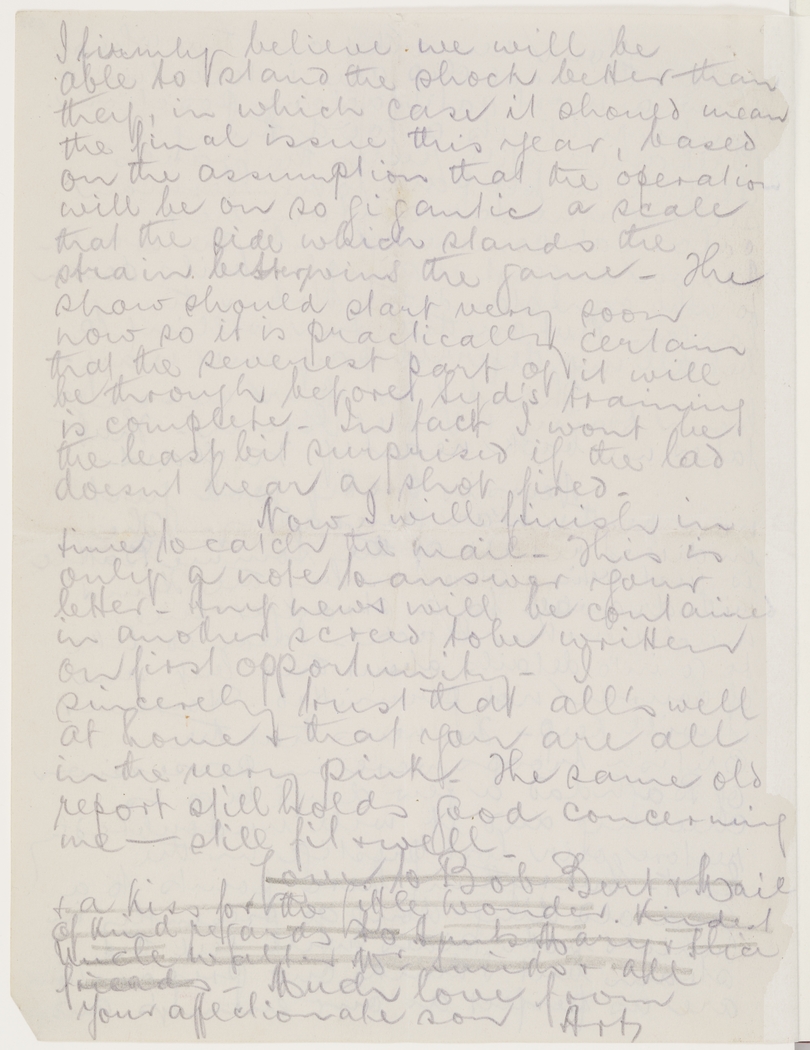 I firmly believe we will be
able to stand the shock better than
they, in which case it should mean
the final issue this year, based
on the assumption that the operation
will be on so gigantic a scale
that the side which stands the
strain better wins the game - The
show should start very soon
now so it is practically certain
that the severest part of it will
be through before Syd's training
is complete - In fact I wont be
the least bit surprised if the lad
doesnt hear a shot fired -
Now I will finish in
time to catch the mail - This is
only a note to answer your
letter - Any news will be contained
in another screed to be written
on first opportunity - I
sincerely trust that all's well
at home & that you are all
in the very pink - The same old
report still holds good concerning
me — still fit & well -
Love to Bob Bert &
& a kiss for the little wonder. Kindest
of kind regards to Aunts Mary &
Uncle Walter Mr & all
friends - Much love from
Your affectionate son Art